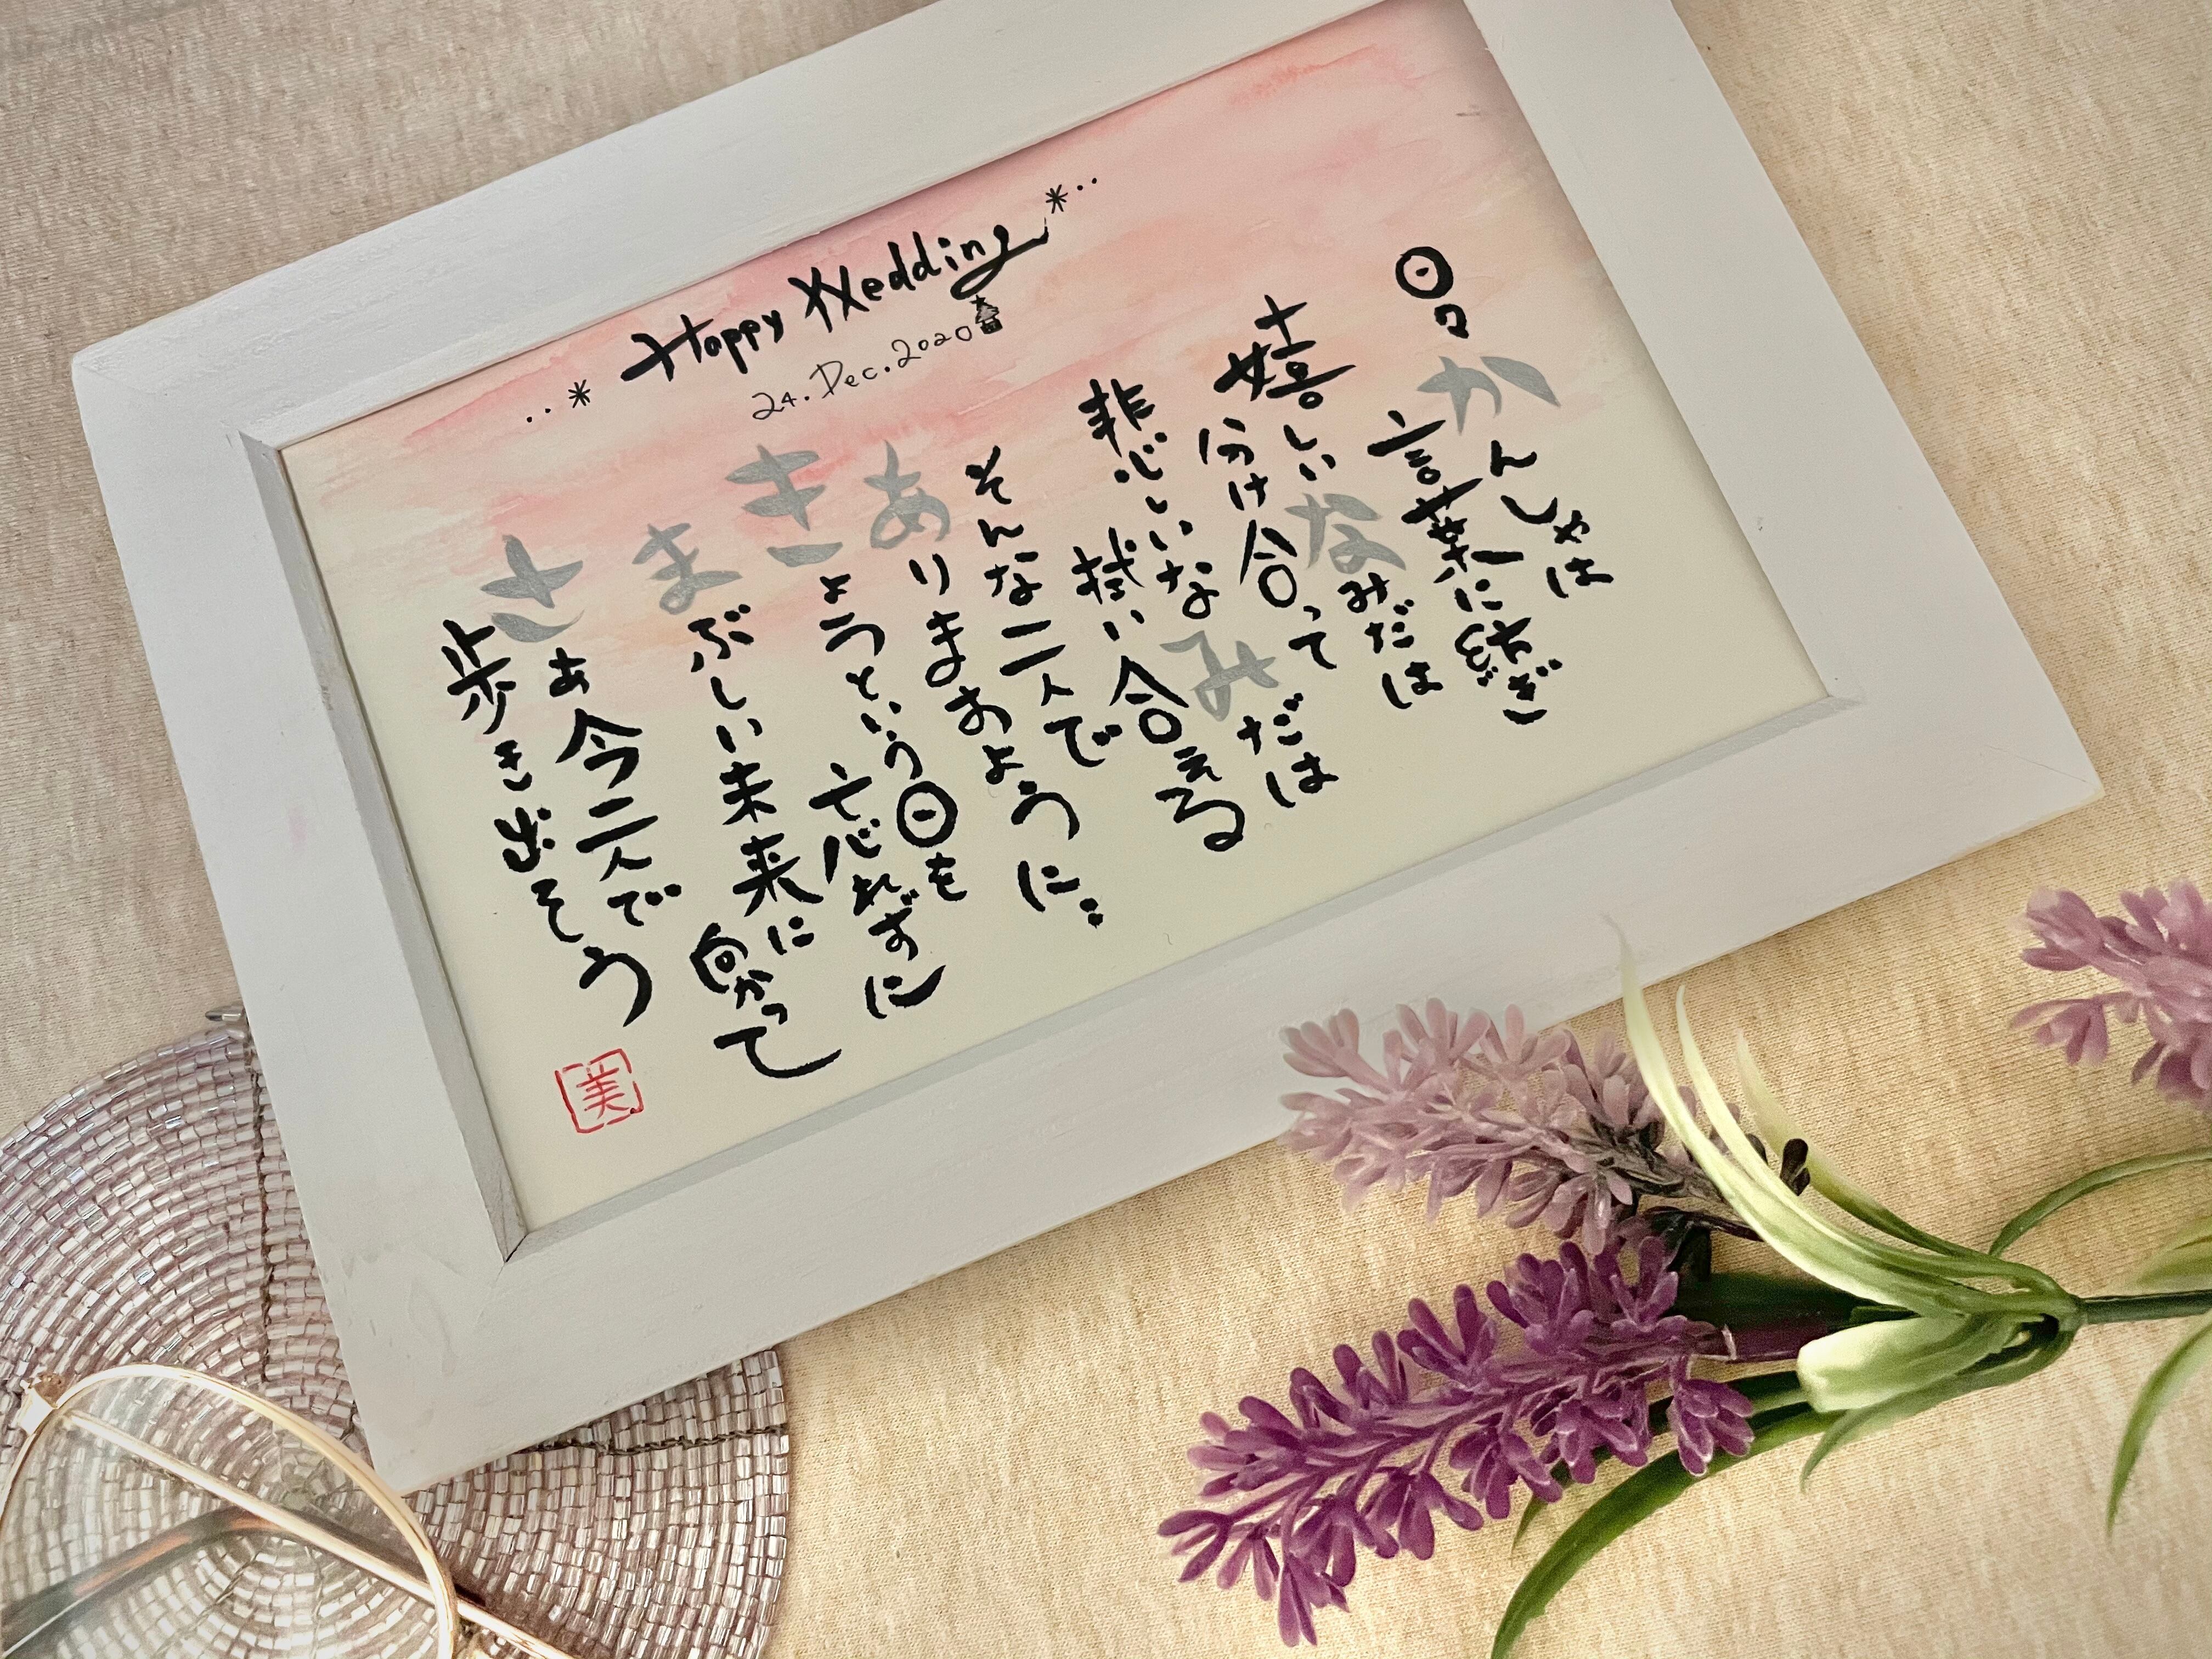 Happy Wedding
24.Dec.2020
日々かんしゃは
言葉に紡ぎ
嬉しいなみだは
分け合って
悲しいなみだは
拭い合える
そんな二人で
ありますように…
きょうという日を
忘れずに
まぶしい未来に
向かって
さぁ今二人で
歩き出そう
美